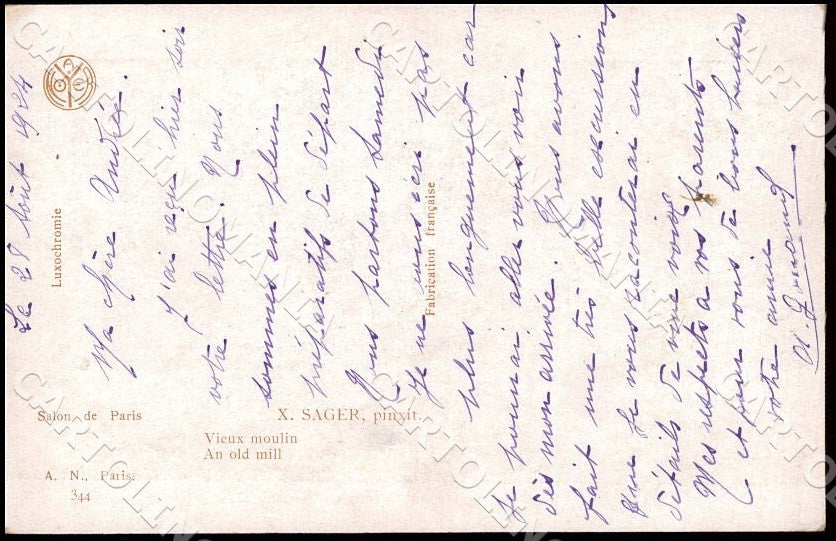 Le 28 Août 1924
Ma chère Andrée.
J'ai reçu hier soir
votre lettre. Nous
sommes en plein
préparatifs de départ
Nous partons Samedi
Je ne vous écri pas
plus longuement car
Je pourrai aller vous voir
dès mon arrivée. Nous avons
fait une très belle excursion
que Je vous raconterai en
détails de vive voix
Mes respects à vos parents
et pour vous de bons baisers
votre amie
Luxochromie
Fabrication française
Salon de Paris
X. SAGER, pinxit.
Vieux moulin
An old mill
A. N., Paris.
344
CARTOLINOMANIA